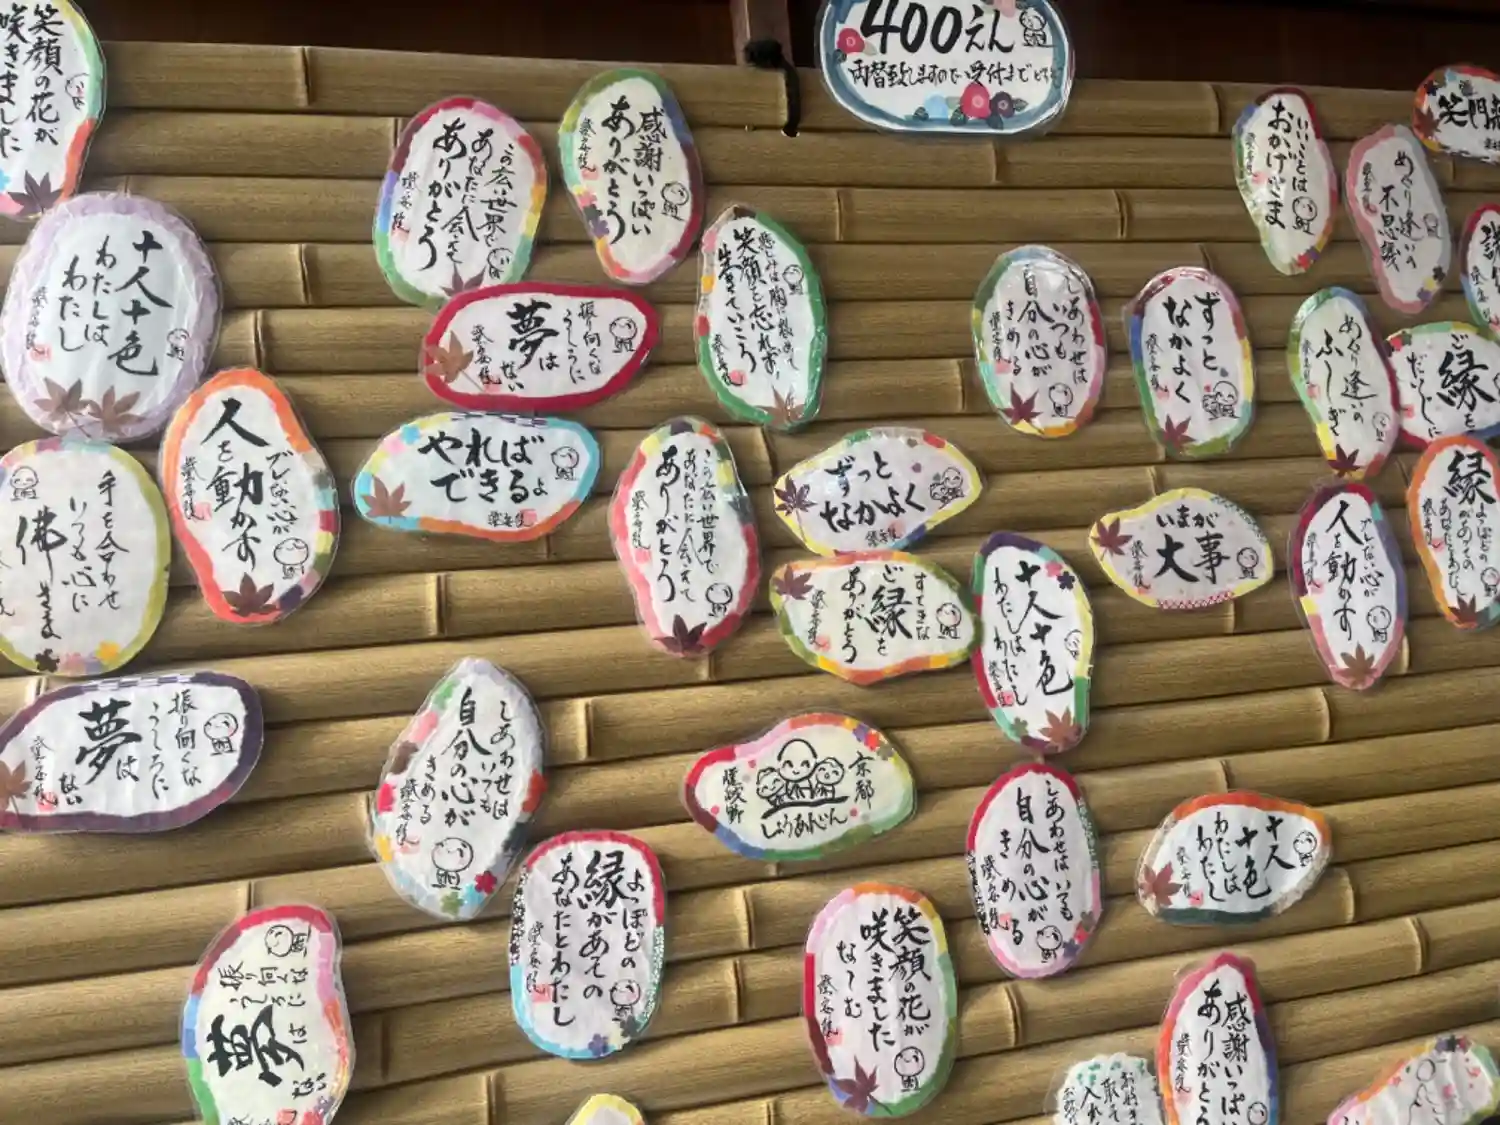 400えん
両替致しますので受付まで
笑顔の花が
咲きました
この広い世界で
あなたに会えて
ありがとう
感謝いっぱい
ありがとう
いいことは
おかげさま
めぐり逢いの
不思議
笑門
十人十色
わたしは
わたし
振り向くな
うしろに
夢は
ない
悲しみは胸に
笑顔を忘れず
生きていこう
しあわせは
いつも
自分の心が
きめる
ずっと
なかよく
めぐり逢いの
ふしぎ
ご縁を
だいじに
ブレない心が
人を動かす
やれば
できるよ
この広い世界で
あなたに会えて
ありがとう
ずっと
なかよく
いまが
大事
ブレない心が
人を動かす
縁
手を合わせ
いつも心に
佛さま
すてきな
ご縁を
ありがとう
十人十色
わたしは
わたし
振り向くな
うしろに
夢は
ない
しあわせは
いつも
自分の心が
きめる
京都
しょうあんじん
嵯峨野
しあわせは いつも
自分の心が
きめる
十人
十色
わたしは
わたし
よっぽどの
縁があっての
あなたとわたし
笑顔の花が
咲きました
な〜む
振り向くな
うしろに
夢は
ない
感謝いっぱい
ありがとう